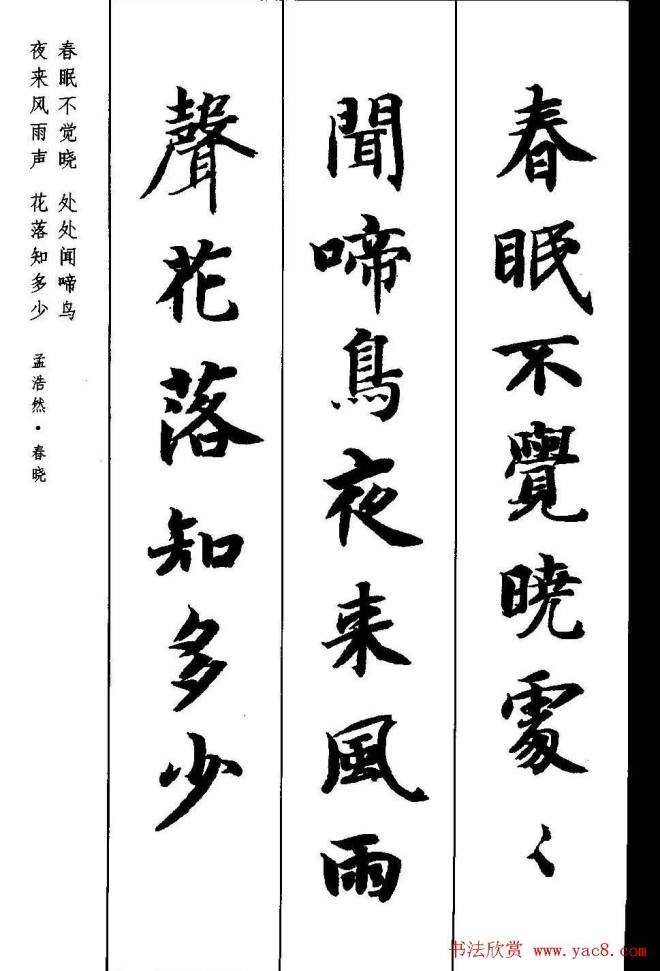 春眠不覺曉處々
聞啼鳥夜来風雨
聲花落知多少
春眠不觉晓 处处闻啼鸟
夜来风雨声 花落知多少
孟浩然·春晓
书法欣赏 www.yac8.com